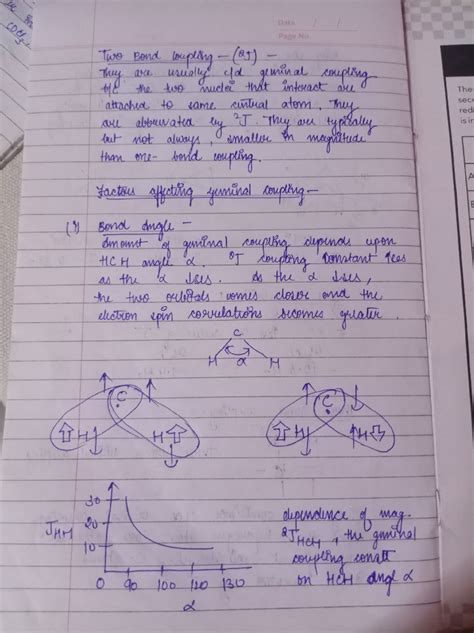 Date / /
Page No.
Two Bond coupling – (²J) –
They are usually c/d geminal coupling
b/c the two nuclei that interact are
attached to same central atom. They
are abbreviated by ²J. They are typically
but not always, smaller in magnitude
than one-bond coupling.
Factors affecting geminal coupling –
(i) Bond Angle –
Amount of geminal coupling depends upon
HCH angle α. ²J coupling constant ↑es
as the α ↓ses. As the α ↓ses,
the two orbitals comes closer and the
electron spin correlations becomes greater.
C
H α H
C C
H H H H
30
J_HH 20
10
0 90 100 120 130
α
dependence of mag.
²J_HCH, the geminal
coupling constt
on HCH angl α
The
sec
red
is in
A